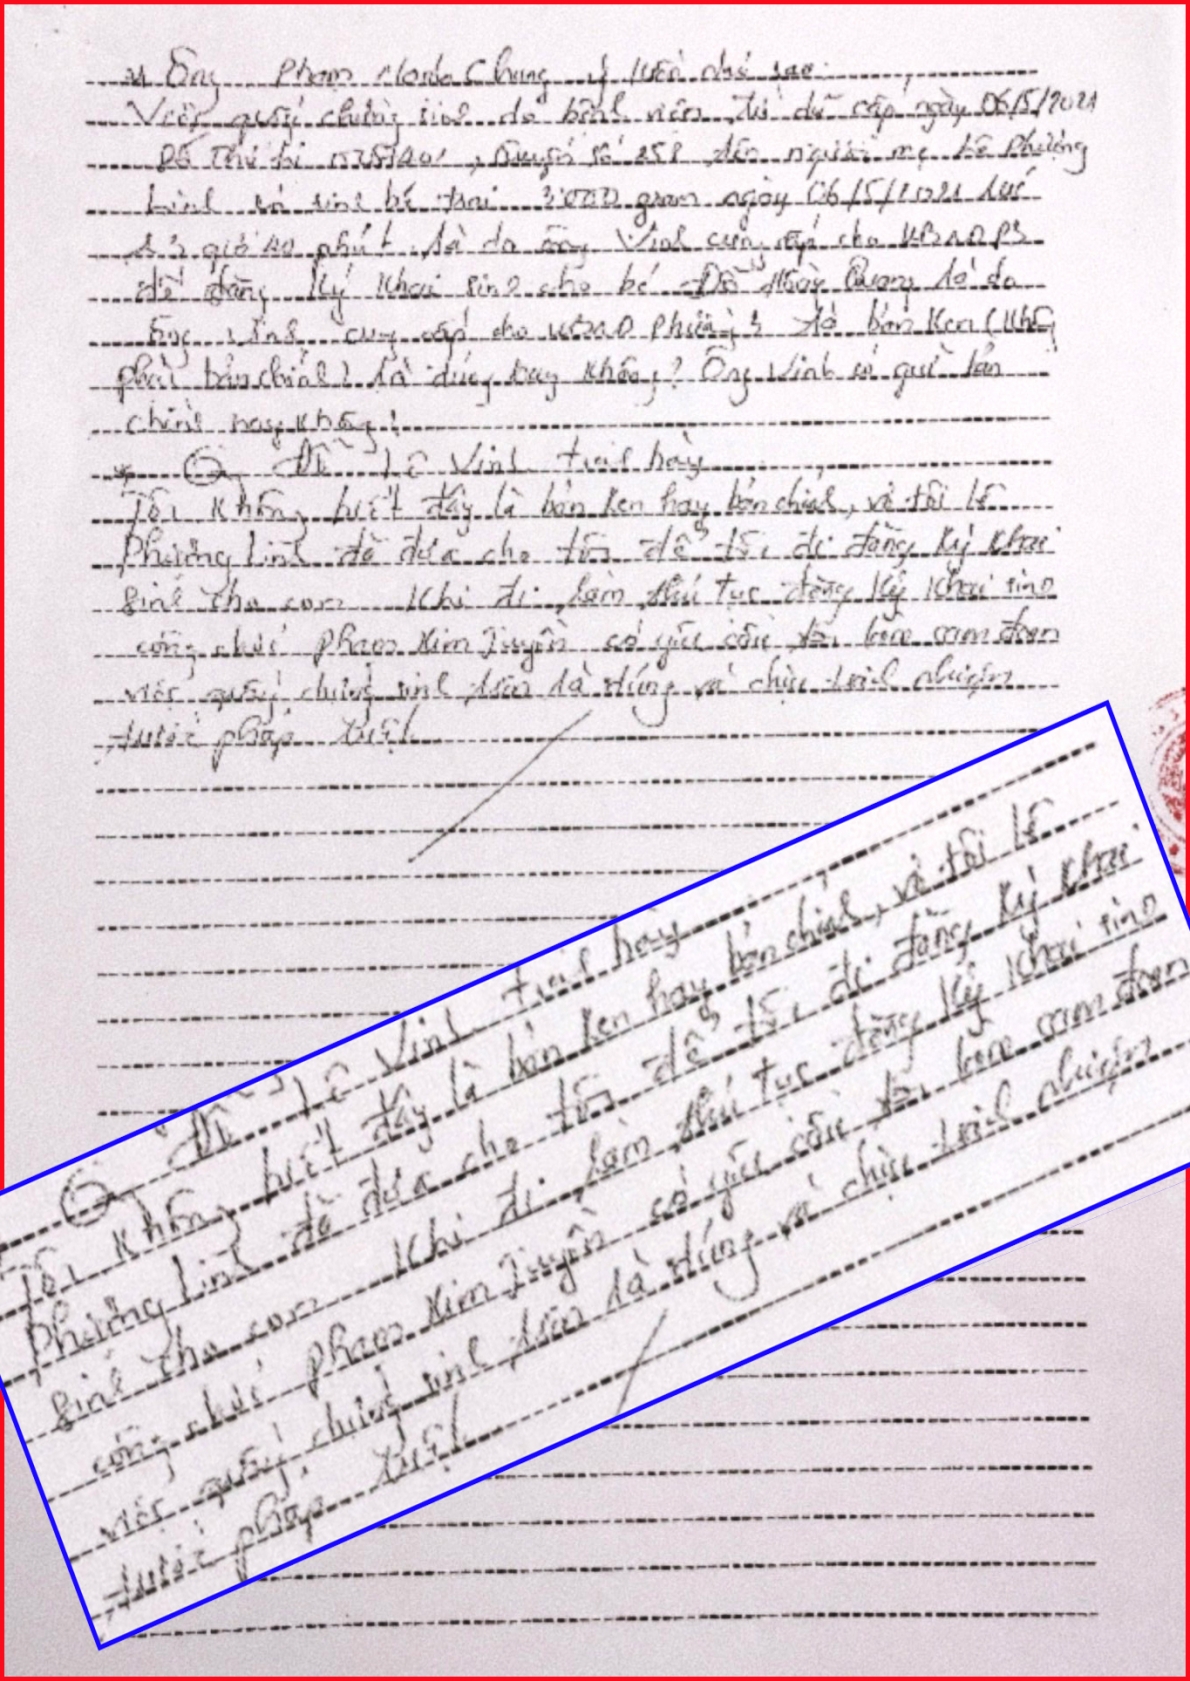 * Ông Phạm Chung ý kiến như sau:
Việc giấy chứng sinh do bệnh viện Từ dũ cấp ngày 06/5/2021
số 258 tên người mẹ Lê Phương
Linh có sinh bé trai 3000 gram ngày 06/5/2021 lúc
13 giờ 40 phút là do ông Vinh cung cấp cho UBND P3
để đăng ký khai sinh cho bé Đỗ Quang là do
Ông Vinh cung cấp cho UBND Phường 3 là bản Ken (Không
phải bản chính) là đúng hay không? Ông Vinh có giữ bản
chính hay không?
* Ô Đỗ Lê Vinh trình bày
Tôi không biết đây là bản Ken hay bản chính, vợ tôi Lê
Phương Linh đã đưa cho tôi để tôi đi đăng ký khai
sinh cho con Khi đi làm thủ tục đăng ký khai sinh
công chức Phạm Kim Tuyền có yêu cầu tôi cam đoan
việc giấy chứng sinh trên là đúng và chịu trách nhiệm
trước pháp luật.
Ô Đỗ Lê Vinh trình bày
Tôi không biết đây là bản Ken hay bản chính, vợ tôi Lê
Phương Linh đã đưa cho tôi để tôi đi đăng ký khai
sinh cho con Khi đi làm thủ tục đăng ký khai sinh
công chức Phạm Kim Tuyền có yêu cầu tôi cam đoan
việc giấy chứng sinh trên là đúng và chịu trách nhiệm
trước pháp luật.